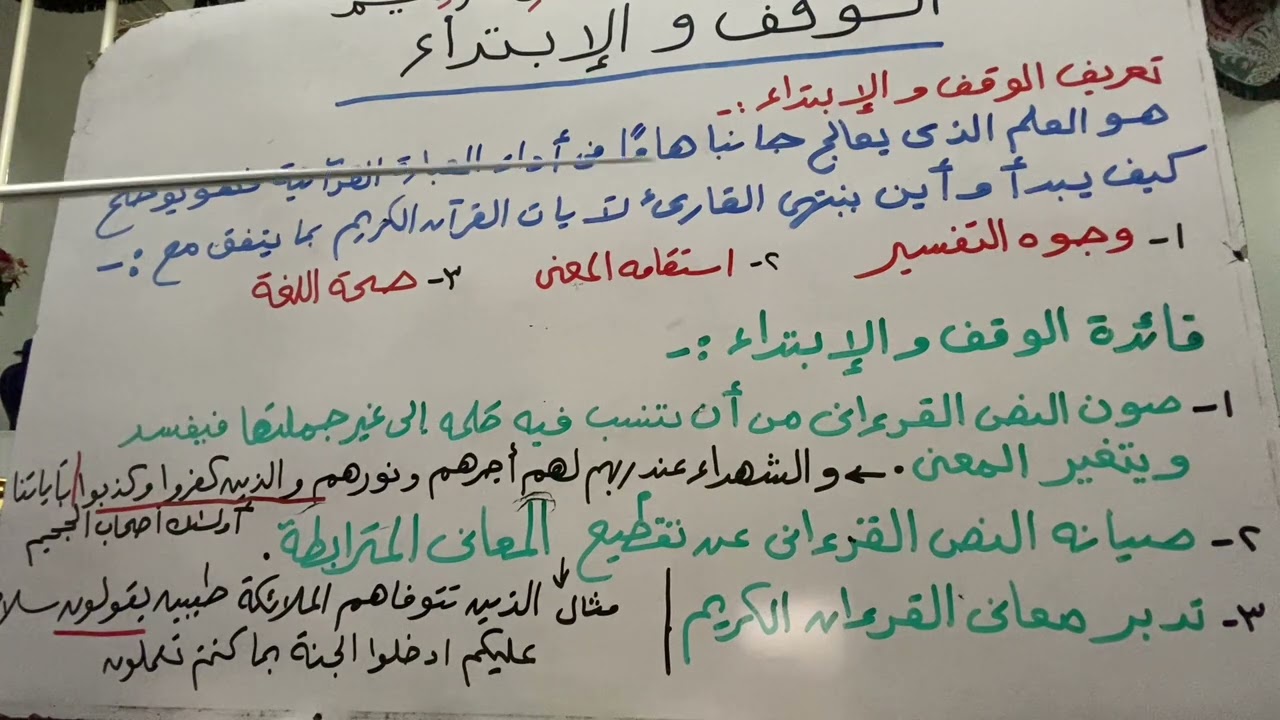 الوقف و الإبتداء
تعريف الوقف و الإبتداء :-
هو العلم الذى يعالج جانبا هامًا فى أداء العبارة القرآنية فهو يوضح
كيف يبدأ وأين ينتهى القارئ لآيات القرآن الكريم بما يتفق مع :-
١- وجوه التفسير ٢- استقامه المعنى ٣- صحة اللغة
فائدة الوقف و الإبتداء :-
١- صون النص القرءانى من أن تنسب فيه كلمه إلى غير جملتها فيفسد
ويتغير المعنى . ← و الشهداء عند ربهم لهم أجرهم و نورهم و الذين كفروا و كذبوا بآياتنا
أولئك أصحاب الجحيم
٢- صيانه النص القرءانى عن تقطيع المعانى المترابطة .
٣- تدبر معانى القرءان الكريم
مثال الذين تتوفاهم الملائكة طيبين يقولون سلام
عليكم ادخلوا الجنة بما كنتم تعملون